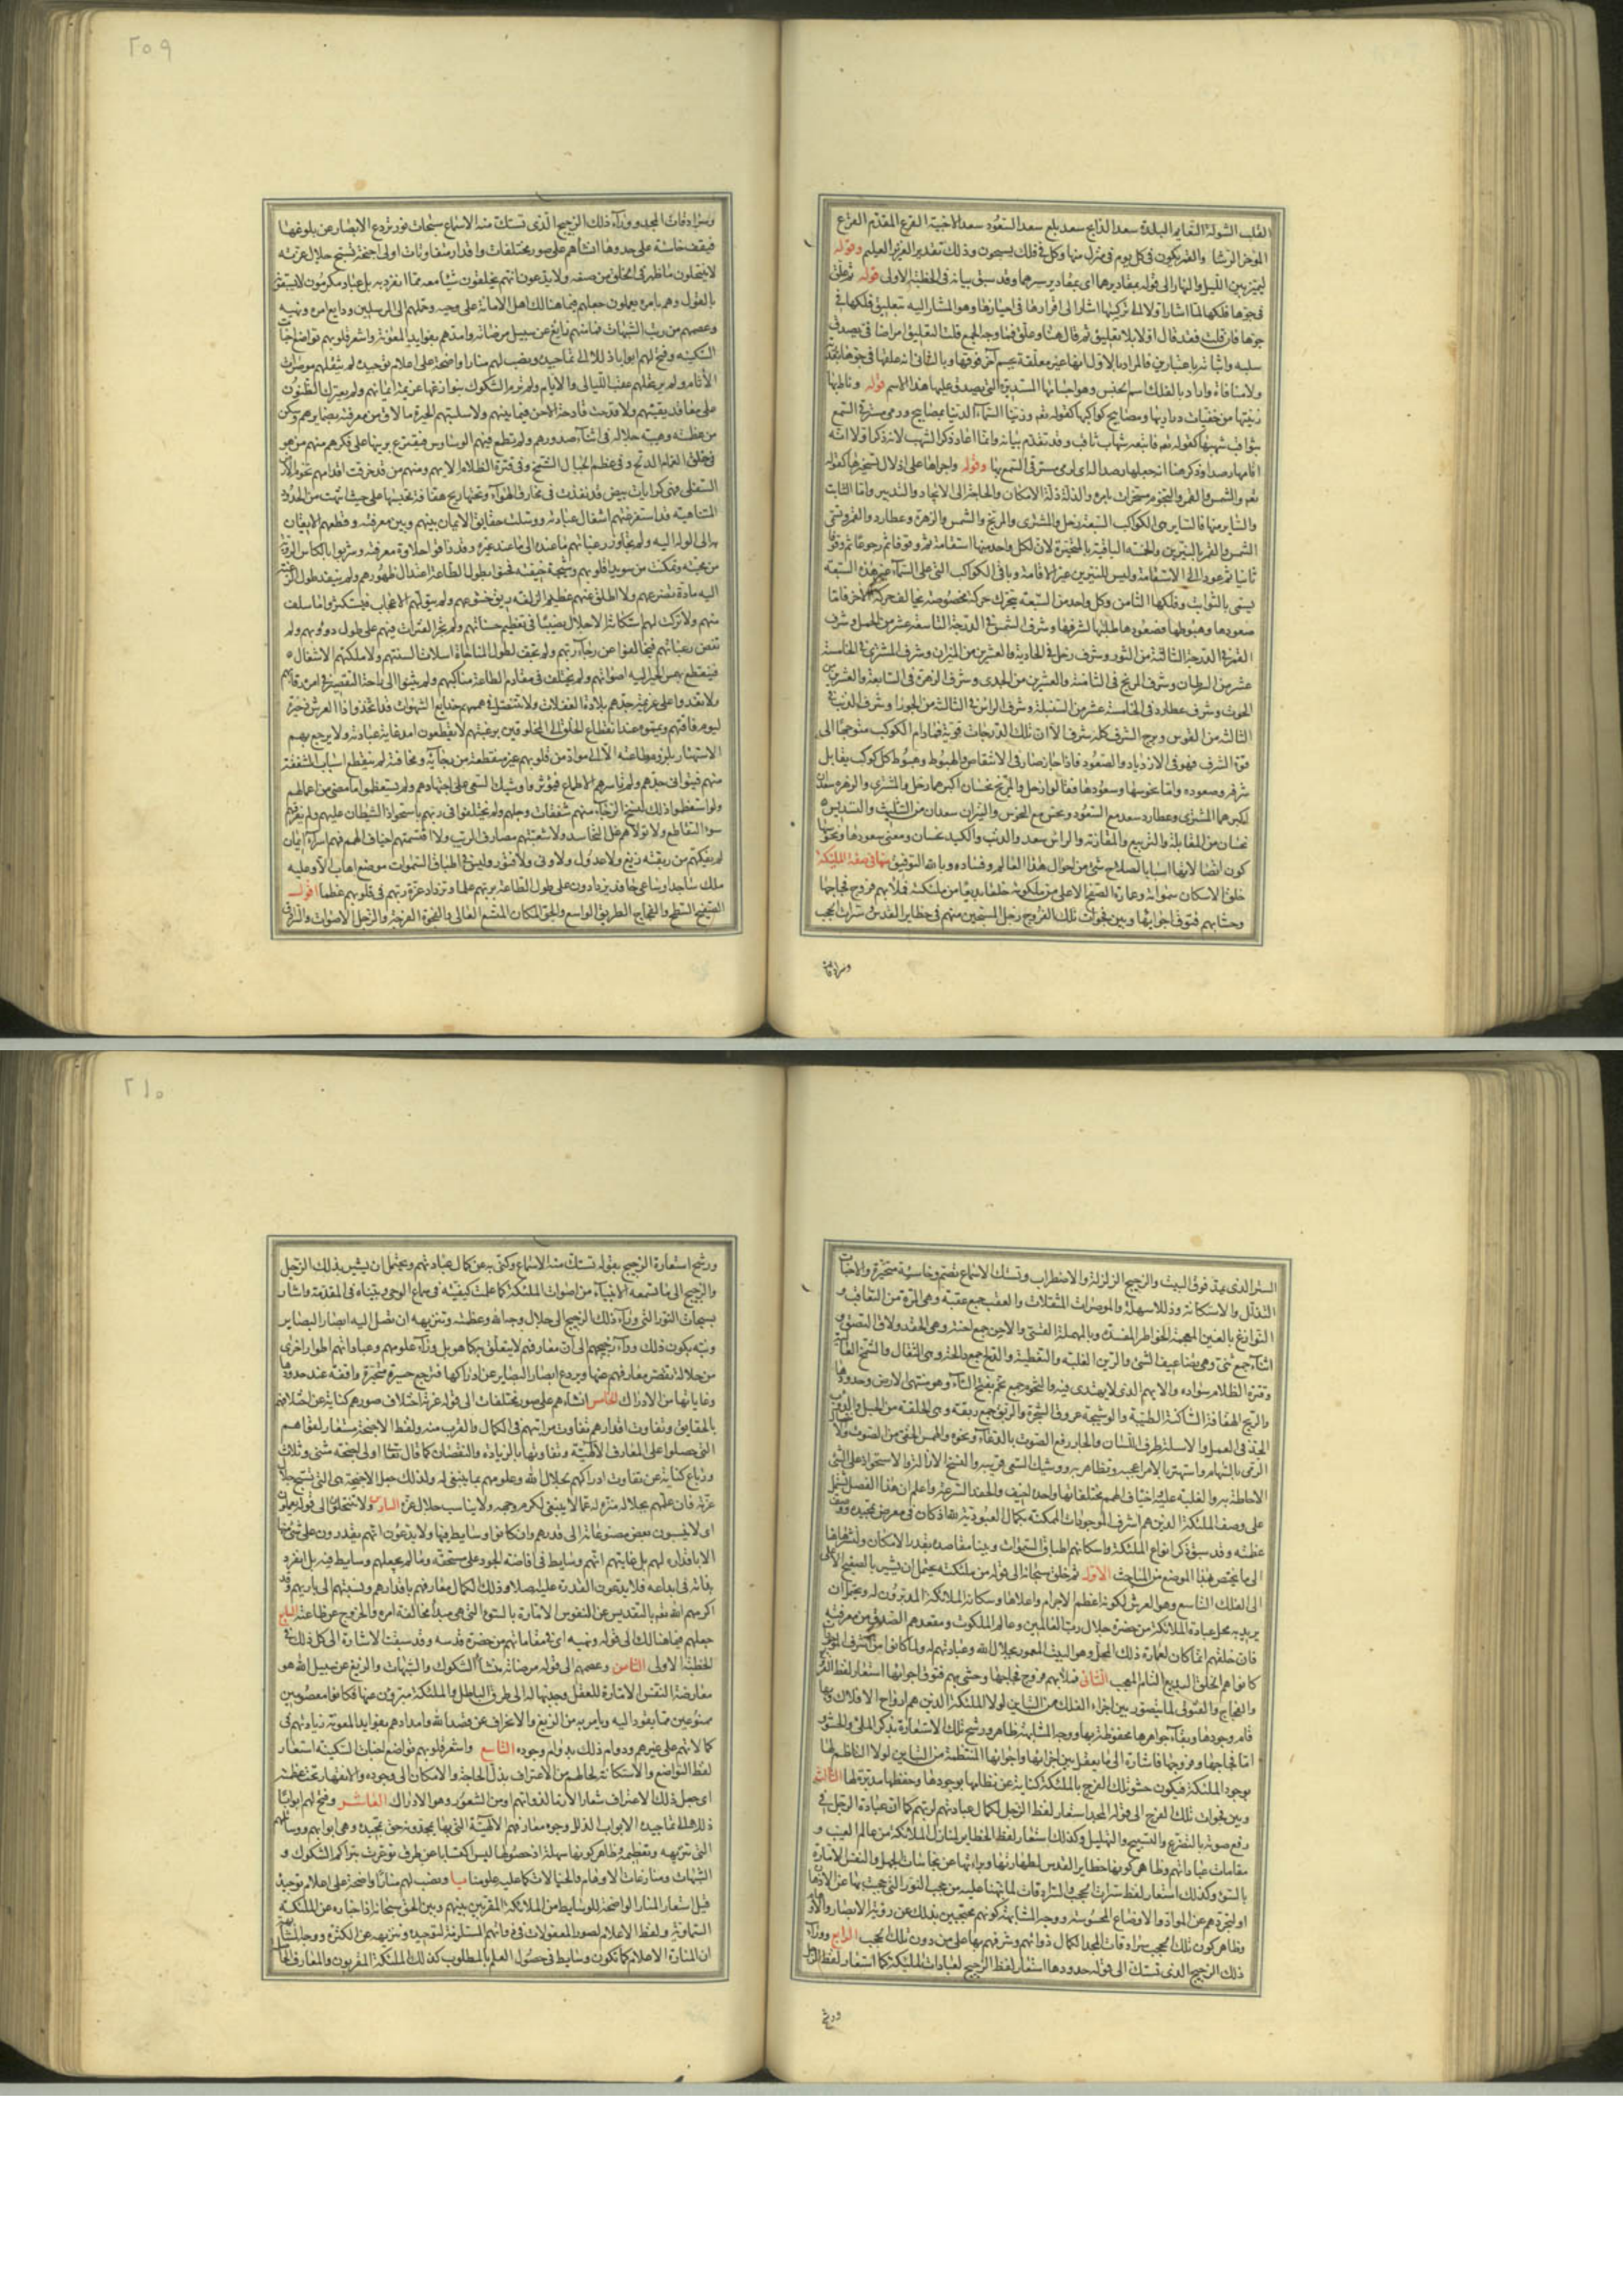 القلب الشولة النعايم البلدة سعد الذابح سعد بلع سعد السعود سعد الاخبية الفرع المقدم الفرع
الموخر الرشا والقمر يكون فى كل يوم فى منزل منها وكل فى فلك يسبحون وذلك تقدير العزيز العليم وقوله
ليميز بين الليل والنهار الى قوله بمقاديرهما اى بمقادير سيرهما وقد سبق بيانه فى الخطبة الاولى قوله ثم علق
فى جوها فلكها لما اشار اولا الى تركيبها اشار الى اقرارها فى احيازها وهو المشار اليه بتعليق فلكها فى
جوها فان قلت فقد قال اولا بلا تعليق ثم قال هنا وعلق فما وجه الجمع قلت التعليق امر اضافى يصدق
سلبه واثباته باعتبارين فالمراد بالاول انها غير معلقة بجسم آخر فوقها وبالثانى انه علقها فى جوها بقدرته
ولا منافاة واراد بالفلك اسم الجنس وهو اجسامها المستديرة التى يصدق عليها هذا الاسم قوله وناط بها
زينتها من خفيات دراريها ومصابيح كواكبها كقوله تعم وزينا السماء الدنيا بمصابيح ورمى مسترقى السمع
بثواقب شهبها كقوله تعم فاتبعه شهاب ثاقب وقد تقدم بيانه وانما اعاد ذكر الشهب لانه ذكر اولا انه
اقامها رصدا وذكر هنا انه جعلها رصدا لذلك اى رمى مسترقى السمع بها وقوله واجراها على اذلال تسخيرها كقوله
تعم والشمس والقمر والنجوم مسخرات بامره والذلة ذلة الامكان والحاجة الى الايجاد والتدبير واما الثابت
والساير منها فالساير هى الكواكب السبعة زحل والمشترى والمريخ والشمس والزهرة وعطارد والقمر وتسمى
الشمس والقمر بالنيرين والخمسة الباقية بالمتحيرة لان لكل واحد منها استقامة ثم وقوفا ثم رجوعا ثم وقوفا
ثانيا ثم عودا الى الاستقامة وليس للنيرين غير الاقامة وباقى الكواكب التى على السماء غير هذه السبعة
يسمى بالثوابت وفلكها الثامن وكل واحد من السبعة يتحرك حركة مخصوصة يخالف حركة الاخر فاما
صعودها وهبوطها فصعودها طلبها لشرفها وشرف الشمس فى الدرجة التاسعة عشر من الحمل وشرف
القمر فى الدرجة الثالثة من الثور وشرف زحل فى الحادية والعشرين من الميزان وشرف المشترى فى الخامسة
عشر من السرطان وشرف المريخ فى الثامنة والعشرين من الجدى وشرف الزهرة فى السابعة والعشرين من
الحوت وشرف عطارد فى الخامسة عشر من السنبلة وشرف الراس فى الثالث من الجوزا وشرف الذنب فى
الثالث من القوس وبرج الشرف كله شرف الا ان تلك الدرجات قوية فما دام الكوكب متوجها الى
قوة الشرف فهو فى الازدياد والصعود فاذا جاز صار فى الانتقاص والهبوط وهبوط كل كوكب يقابل
شرفه وصعوده واما نحوسها وسعودها فقالوا زحل والمريخ نحسان اكبرهما زحل والمشترى والزهره سعدان
اكبرهما المشترى وعطارد سعد مع السعود ونحس مع النحوس والنيران سعدان من التثليث والتسديس
نحسان من المقابلة والتربيع والمقارنة والراس سعد والذنب والكيد نحسان ومعنى سعودها ونحوسها
كون اتصالاتها اسبابا لصلاح شئ من احوال هذا العالم وفساده وبالله التوفيق منها فى صفة الملئكة
خلق لاسكان سمواته وعمارة الصفيح الاعلى من ملكوته خلقا بديعا من ملئكته فملأ بهم فروج فجاجها
وحشا بهم فتوق اجوائها وبين فجوات تلك الفروج زجل المسبحين منهم فى حظاير القدس سترات الحجب
وسرادقات
وسرادقات المجد ووراء ذلك الرجيج الذى تستك منه الاسماع سبحات نور تردع الابصار عن بلوغها
فيقف خاسئة على حدودها انشاهم على صور مختلفات واقدار متفاوتات اولى اجنحة تسبح جلال عزته
لا ينتحلون ما ظهر فى الخلق من صنعه ولا يدعون انهم يخلقون شيئا معه مما انفرد به بل عباد مكرمون لا يسبقونه
بالقول وهم بامره يعملون جعلهم فيما هنالك اهل الامانة على وحيه وحملهم الى المرسلين ودايع امره ونهيه
وعصمهم من ريب الشبهات فما منهم زايغ عن سبيل مرضاته وامدهم بفوايد المعونة واشعر قلوبهم تواضع اخبات
السكينه وفتح لهم ابوابا ذللا الى تماجيده ونصب لهم منارا واضحة على اعلام توحيده لم يثقلهم موصرات
الآثام ولم يرتحلهم عقب الليالى والايام ولم ترم الشكوك بنوازغها عزيمة ايمانهم ولم يعترك الظنون
على معاقد يقينهم ولا قدحت قادحة الاحن فيما بينهم ولا سلبتهم الحيرة ما لاق من معرفته بضمايرهم وسكن
من عظمته وهيبة جلاله فى اثناء صدورهم ولم يطمع فيهم الوساوس فيقترع بريبها على فكرهم منهم من هو
فى خلق الغمام الدلح وفى عظم الجبال الشمخ وفى قترة الظلام الايهم ومنهم من قد خرقت اقدامهم تخوم الارض
السفلى فهى كرايات بيض قد نفذت فى مخارق الهواء وتحتها ريح هفافة تحبسها على حيث انتهت من الحدود
المتناهية قد استفرغتهم اشغال عبادته ووسلت حقايق الايمان بينهم وبين معرفته وقطعهم الايقان
به الى الوله اليه ولم يجاوز رغباتهم ما عنده الى ما عند غيره وقد ذاقوا حلاوة معرفته وشربوا بالكاس الروية
من محبته وتمكنت من سويدا قلوبهم وشيجة خيفته فحنوا بطول الطاعة اعتدال ظهورهم ولم ينفد طول الرغبة
اليه مادة تضرعهم ولا اطلق عنهم عظيم الزلفة ربق خشوعهم ولم يتولهم الاعجاب فيستكثروا ما سلف
منهم ولا تركت لهم استكانة الاجلال نصيبا فى تعظيم حسناتهم ولم تجر الفترات فيهم على طول دووبهم ولم
تغض رغباتهم فيخالفوا عن رجاء ربهم ولم تجف لطول المناجاة اسلات السنتهم ولا ملكتهم الاشغال
فينقطع بهمس الجوار اليه اصواتهم ولم يختلف فى مقاوم الطاعة مناكبهم ولم يثنوا الى راحة التقصير فى امره رقابهم
ولا تعدوا على عزيمة جدهم بلادة الغفلات ولا تنتضل فى هممهم خدايع الشهوات قد اتخذوا ذا العرش ذخيرة
ليوم فاقتهم ويمموه عند انقطاع الخلق الى المخلوقين برغبتهم لا يقطعون امد غاية عبادته ولا يرجع بهم
الاستهتار بلزوم طاعته الا الى مواد من قلوبهم غير منقطعة من رجائه ومخافته لم ينقطع اسباب الشفقة
منهم فينوا فى جدهم ولم ياسرهم الاطماع فيؤثروا وشيك السعى على اجتهادهم ولم يستعظموا ما مضى من اعمالهم
ولو استعظموا ذلك لنسخ الرجاء منهم شفقات وجلهم ولم يختلفوا فى ربهم باستحواذ الشيطان عليهم ولم يفرقهم
سوء التقاطع ولا تولاهم غل التحاسد ولا شعبتهم مصارف الريب ولا اقتسمتهم اخياف الهمم فهم اسراء ايمان
لم يفكهم من ربقته زيغ ولا عدول ولا ونى ولا فتور وليس فى اطباق السموات موضع اهاب الا وعليه
ملك ساجد او ساعى حافد يزدادون على طول الطاعة بربهم علما وتزداد عزة ربهم فى قلوبهم عظما اقول
الصفيح السطح والفجاج الطريق الواسع والجو المكان المتسع العالى والفجوة الفرجة والزجل الاصوات والسرادق
الستر الذى يمد فوق البيت والرجيج الزلزلة والاضطراب وتستك الاسماع تصتم وخاسئة متحيرة والاخبات
التذلل والاستكانة وذللا سهلة والموصرات المثقلات والعقب جمع عقبة وهى المرة من التعاقب و
النوازغ بالغين المعجمة الخواطر المفسدة وبالمهملة القسى والاحن جمع احنة وهى الحقد ولاق التصق و
اثناء جمع ثنى وهى تضاعيف الشئ والرين الغلبة والتغطية والدلح جمع دالحة وهى الثقال والشمخ العالية
وقترة الظلام سواده والايهم الذى لا يهتدى فيه والتخوم جمع تخم بفتح التاء وهو منتهى الارض وحدودها
والريح الهفافة الساكنة الطيبة والوشيجة عروق الشجرة والربق جمع ربقة وهى الحلقة من الحبل والدووب
الجد فى العمل والاسلة طرف اللسان والجار رفع الصوت بالدعاء ونحوه والهمس الخفى من الصوت
الرمى بالسهام واستهتر بالامر اعجب به وتظاهر به ووشيك السعى قريبه والنسخ الازالة والاستحواذ على الشئ
الاحاطة به والغلبة عليه واخياف الهمم مختلفاتها واحده اخيف والحفد السرعة واعلم ان هذا الفصل يشتمل
على وصف الملئكة الذين هم اشرف الموجودات الممكنة بكمال العبودية لله تعا اذ كان فى معرض تمجيده ووصف
عظمته وقد سبق ذكر انواع الملئكة واسكانهم اطباق السموات وبينا مقاصده بقدر الامكان ولنشر هاهنا
الى ما يختص بهذا الموضع من المباحث الاول ثم خلق سبحانه الى قوله من ملئكته يحتمل ان يشير بالصفيح الاعلى
الى الفلك التاسع وهو العرش لكونه اعظم الاجرام واعلاها وسكانه الملائكة المدبرون له ويحتمل ان
يريد به محل عبادة الملائكة من حضرة جلال رب العالمين وعالم الملكوت ومقعدهم الصدق من معرفته
فان خلقهم انما كان لعمارة ذلك المحل وهو البيت المعمور بجلال الله وعبادتهم له ولما كانوا من اشرف الموجودات
كانوا هم الخلق البديع التام المعجب الثانى فملأ بهم فروج فجاجها وحشى بهم فتوق اجوائها استعار لفظ الفروج
والفجاج والفتوق لما يتصور بين اجزاء الفلك من التباين لولا الملائكة الذين هم ارواح الافلاك وبها
قام وجودها وبقاء جواهرها محفوظة بها ووجه المشابهة ظاهر ورشح تلك الاستعارة بذكر الملئ والحشو و
اما فجاجها وفروجها فاشارة الى ما يعقل بين اجزائها واجوائها المنتظمة من التباين لولا الناظم لها
بوجود الملئكة فيكون حشو تلك الفرج بالملئكة كناية عن نظامها بوجودها وحفظها مدبرة لها الثالث
وبين فجوات تلك الفرج الى قوله المجد استعار لفظ الزجل لكمال عبادتهم لربهم كما ان عبادة الرجل فى
رفع صوته بالتضرع والتسبيح والتهليل وكذلك استعار لفظ الحظاير لمنازل الملائكة من عالم الغيب و
مقامات عباداتهم وظاهر كونها حظاير القدس لطهارتها وبراءتها عن نجاسات الجهل والنفس الامارة
بالسوء وكذلك استعار لفظ سترات الحجب والسرادقات لما نبهنا عليه من حجب النور التى حجبت بها عن الاذهان
او لتجردهم عن المواد والاوضاع المحسوسة ووجه المشابهة كونهم محتجبين بذلك عن رؤية الابصار والاوهام
وظاهر كون تلك الحجب سرادقات المجد لكمال ذواتهم وشرفهم بها على من دون تلك الحجب الرابع ووراء
ذلك الرجيج الذى تستك الى قوله حدودها استعار لفظ الرجيج لعبادات الملئكة كما استعار لفظ الزجل
ورشح
ورشح استعارة الرجيج بقوله تستك منه الاسماع وكنى به عن كمال عبادتهم ويحتمل ان يشير بذلك الزجل
والرجيج الى ما تسمعه الانبياء من اصوات الملئكة كما علمت كيفيته فى سماع الوحى وبيناه فى المقدمة واشار
بسبحات النور التى وراء ذلك الرجيج الى جلال وجه الله وعظمته وتنزيهه ان تصل اليه ابصار البصاير
ونبه بكون ذلك وراء رجيجهم الى ان معارفهم لا يتعلق به كما هو بل وراء علومهم وعباداتهم اطوار اخرى
من جلاله تقصر معارفهم عنها ويردع ابصار البصاير عن ادراكها فترجع حسيرة متحيرة واقفة عند حدودها
وغاياتها من الادراك الخامس انشاهم على صور مختلفات الى قوله عزته اختلاف صورهم كناية عن اختلافهم
بالحقايق وتفاوت اقدارهم تفاوت مراتبهم فى الكمال والقرب منه ولفظ الاجنحة مستعار لقواهم
التى حصلوا على المعارف الالهية وتفاوتها بالزيادة والنقصان كما قال تعا اولى اجنحة مثنى وثلاث
ورباع كناية عن تفاوت ادراكهم لجلال الله وعلومهم بما ينبغى له ولذلك جعل الاجنحة هى التى تسبح جلال
عزته فان علمهم بجلاله منزه له عما لا ينبغى لكرم وجهه ولا يناسب جلال عزه السادس ولا ينتحلون الى قوله يعملون
اى لا ينسبون بعض مصنوعاته الى قدرهم وان كانوا وسايط فيها ولا يدعون انهم يقدرون على شئ منها
الا باقداره لهم بل غايتهم انهم وسايط فى افاضة الجود على مستحقه وما لم يجعلهم وسايط فيه بل انفرد
بذاته فى ابداعه فلا يدعون القدرة عليه اصلا وذلك لكمال معارفهم باقدارهم ونسبتهم الى باريهم وقد
اكرمهم الله تعم بالتقديس عن النفوس الامارة بالسوء التى هى مبدأ مخالفة امره والخروج عن طاعته السابع
جعلهم فيما هنالك الى قوله ونهيه اى فى مقاماتهم من حضرة قدسه وقد سبقت الاشارة الى كل ذلك فى
الخطبة الاولى الثامن وعصمهم الى قوله مرضاته منشأ الشكوك والشبهات والزيغ عن سبيل الله هو
معارضة النفس الامارة للعقل وجذبها له الى طرق الباطل والملئكة مبرؤن عنها فكانوا معصومين
ممنوعين مما يقود اليه ويامر به من الزيغ والانحراف عن قصد الله وامدادهم بفوايد المعونة زيادتهم فى
كمالاتهم على غيرهم ودوام ذلك بدوام وجوده التاسع واشعر قلوبهم تواضع اخبات السكينة استعار
لفظ التواضع والاستكانة لحالهم من الاعتراف بذل الحاجة والامكان الى وجوده والانقهار تحت عظمته
اى جعل ذلك الاعتراف شعارا لازما لذواتهم او من الشعور وهو الادراك العاشر وفتح لهم ابوابا
ذللا الى تماجيده الابواب الذلل وجوه معارفهم الالهية التى بها يمجدونه حق تمجيده وهى ابوابهم ووسايلهم
التى تنزيهه وتعظيمه وظاهر كونها سهلة اذ حصولها ليس اكتسابا عن طرق توعرت بتراكم الشكوك و
الشبهات ومنازعات الاوهام والخيالات كما عليه علومنا يا ونصب لهم منارا واضحة على اعلام توحيده
قيل استعار المنار الواضحة للوسايط من الملائكة المقربين بينهم وبين الحق سبحانه اذ اخباره عن الملئكة
السماوية ولفظ الاعلام لصور المعقولات فى ذواتهم المستلزمة لتوحيده وتنزيهه عن الكثرة ووجه المشابهة
ان المنارة والاعلام كما تكون وسايط فى حصول العلم بالمطلوب كذلك الملئكة المقربون والمعارف الحاصلة
٢٥٩
٢١٠